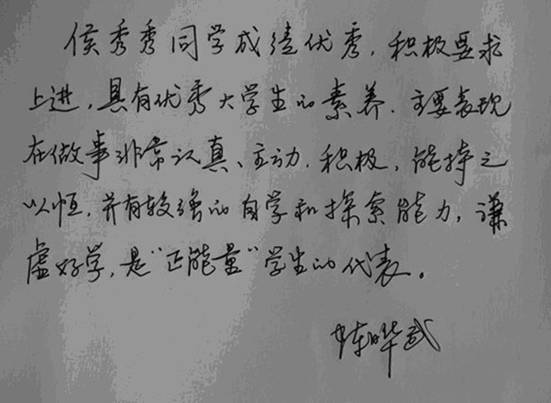 侯秀秀同学成绩优秀，积极要求
上进，具有优秀大学生的素养．主要表现
在做事非常认真、主动．积极，能持之
以恒，并有较强的自学和探索能力，谦
虚好学，是“正能量”学生的代表。
陈晔武